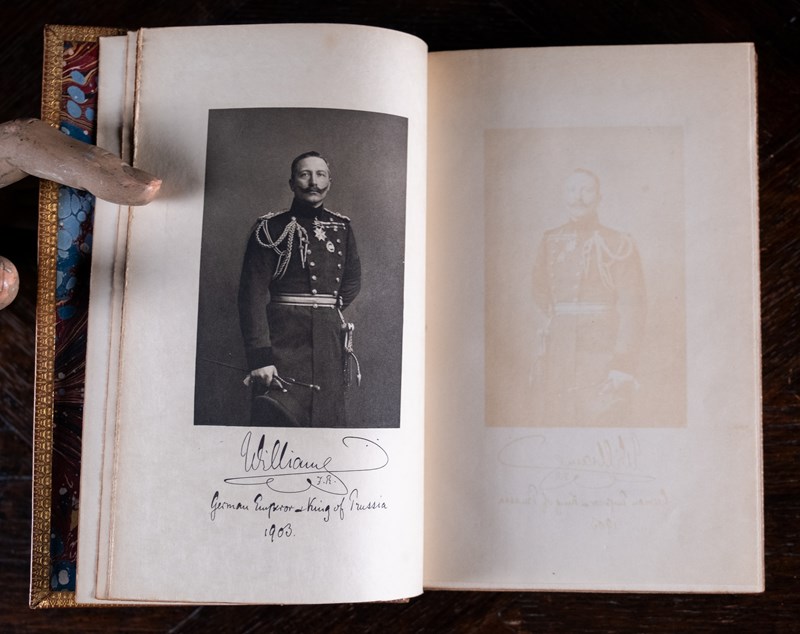 William
I.R.
German Emperor & King of Prussia
1903.